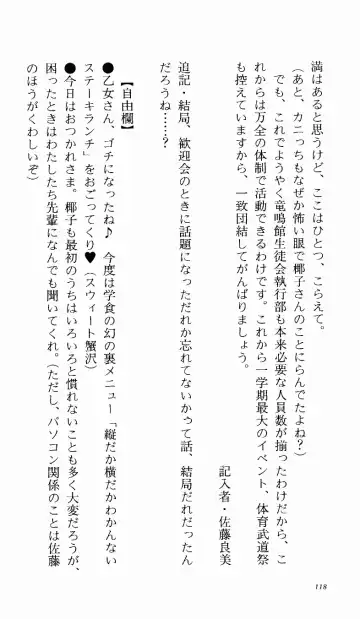 満はあると思うけど、ここはひとつ、こらえて。
（あと、カニっちもなぜか怖い眼で椰子さんのことにらんでたよね？）
でも、これでようやく竜鳴館生徒会執行部も本来必要な人員数が揃ったわけだから、こ
れからは万全の体制で活動できるわけです。これから一学期最大のイベント、体育武道祭
も控えていますから、一致団結してがんばりましょう。
記入者・佐藤良美
追記・結局、歓迎会のときに話題になっただれか忘れてないかって話、結局だれだったん
だろうね……？
【自由欄】
●乙女さん、ゴチになったね♪　今度は学食の幻の裏メニュー「縦だか横だかわかんない
ステーキランチ」をおごってくり♥（スウィート蟹沢）
●今日はおつかれさま。椰子も最初のうちはいろいろと慣れないことも多く大変だろうが、
困ったときはわたしたち先輩になんでも聞いてくれ。（ただし、パソコン関係のことは佐藤
のほうがくわしいぞ）
118